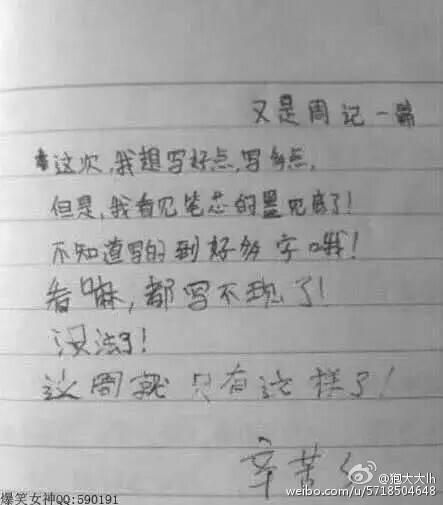 又是周记一篇
这次,我想写好点,写多点,
但是,我看见笔芯的墨见底了!
不知道写的到好多字哦!
看嘛,都写不现了!
没法了!
这周就只有这样了!
辛苦
爆笑女神QQ:590191
@狍大大lh
weibo.com/u/5718504648